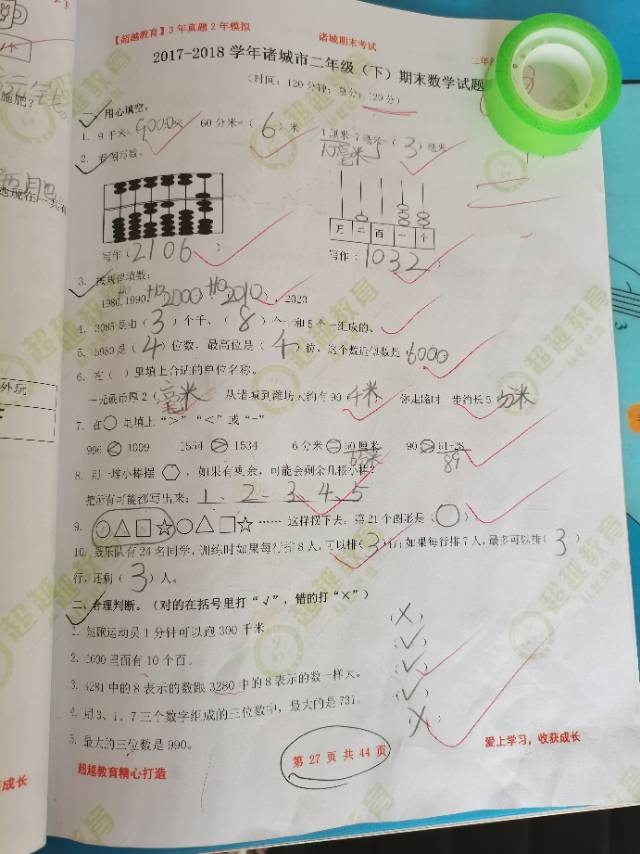 【超越教育】3年真题2年模拟 诸城期末考试
2017-2018 学年诸城市二年级（下）期末数学试题
（时间：120分钟；总分：120分）
一、用心填空。
1. 9千米= 9000米 60分米=（6）米 1厘米-7毫米=（3）毫米
10毫米
2. 看图写数。
万 千 百 十 个
写作（2106） 写作：（1032）
3. 按规律填数：
1980, 1990, 2000, 2010, 2020
4. 3085是由（3）个千、（8）个十和5个一组成的。
5. 5980是（4）位数，最高位是（4）位，这个数近似数是6000
6. 在（ ）里填上合适的单位名称。
一元硬币厚2（毫米 从诸城到潍坊大约有90 千米 你走路时一步约长5 分米
7. 在○里填上“>”“<”或“=”
996 < 1009 2554 > 1534 6分米 = 60厘米 90 > 61+28
89
8. 用一堆小棒摆 ，如果有剩余，可能会剩余几根小棒？
把所有可能都写出来：1、2、3、4、5
9. ○△□☆○△□☆ …… 这样摆下去，第21个图形是（○）
10. 鼓乐队有24名同学，训练时如果每行排8人，可以排（3）行；如果每行排7人，最多可以排（3）
行，还剩（3）人。
二、合理判断。（对的在括号里打“√”，错的打“×”）
1. 短跑运动员1分钟可以跑300千米 （×）
2. 1000里面有10个百。 （√）
3. 4281中的8表示的数跟3280中的8表示的数一样大。 （√）
4. 用3、1、7三个数字组成的三位数中，最大的是731。 （√）
5. 最大的三位数是990。 （×）
超越教育精心打造 第 27 页 共 44 页 爱上学习，收获成长